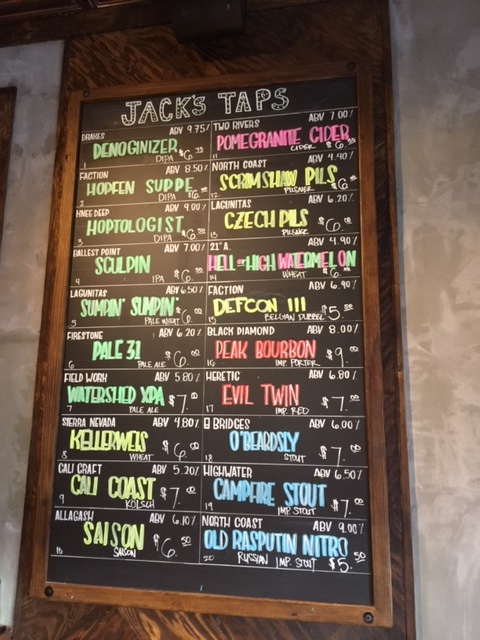 JACK'S TAPS
DRAKES ABV 9.75%
DENOGINIZER
1 DIPA $6.
FACTION ABV 8.50%
HOPFEN SUPPE
2 DIPA $6.
KNEE DEEP ABV 9.00%
HOPTOLOGIST
3 DIPA $6.
BALLEST POINT ABV 7.00%
SCULPIN
4 IPA $6.
LAGUNITAS ABV 6.50%
SUMPIN' SUMPIN'
5 PALE WHEAT $6.
FIRESTONE ABV 6.20%
PALE 31
6 PALE ALE $6.
FIELD WORK ABV 5.80%
WATERSHED XPA
7 PALE ALE $7.
SIERRA NEVADA ABV 4.80%
KELLERWEIS
8 WHEAT $6.
CALI CRAFT ABV 5.20%
CALI COAST
9 KOLSCH $7.
ALLAGASH ABV 6.10%
SAISON
10 SAISON $6.50
TWO RIVERS ABV 7.00%
POMEGRANITE CIDER
11 CIDER $6.
NORTH COAST ABV 4.40%
SCRIMSHAW PILS
12 PILSNER $6.
LAGUNITAS ABV 6.20%
CZECH PILS
13 PILSNER $6.
21ST A. ABV 4.90%
HELL OR HIGH WATERMELON
14 WHEAT $6.
FACTION ABV 6.90%
DEFCON III
15 BELGIAN DUBBEL $5.
BLACK DIAMOND ABV 8.00%
PEAK BOURBON
16 IMP. PORTER $9.
HERETIC ABV 6.80%
EVIL TWIN
17 IMP. RED $7.
8 BRIDGES ABV 6.00%
O'BEARDSLY
18 STOUT $7.
HIGHWATER ABV 6.50%
CAMPFIRE STOUT
19 IMP. STOUT $7.
NORTH COAST ABV 9.00%
OLD RASPUTIN NITRO
20 RUSSIAN IMP. STOUT $5.50